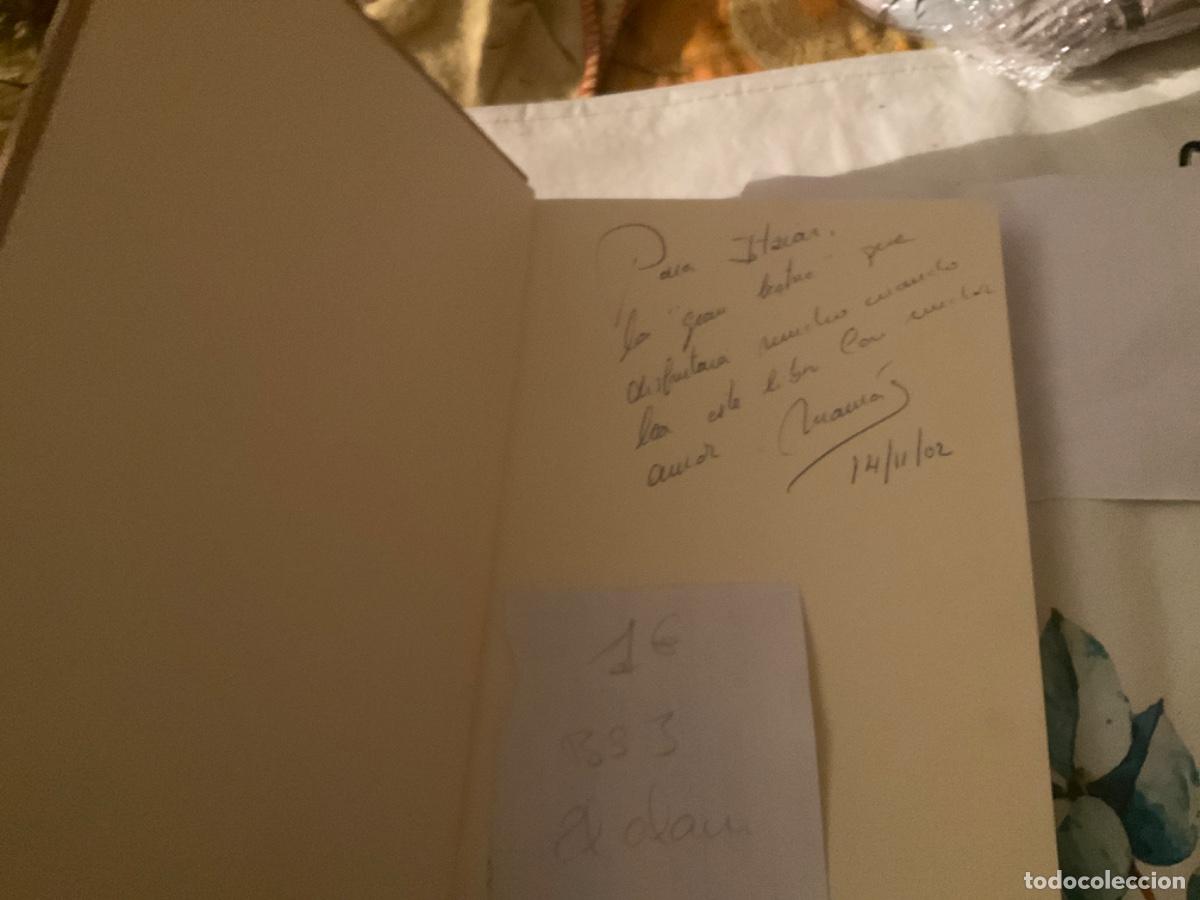 Para Itziar,
la "gran que
disfrutara mucho cuando
lea este libro Con mucho
amor Mamá
14/11/02
1€
B93
todocoleccion